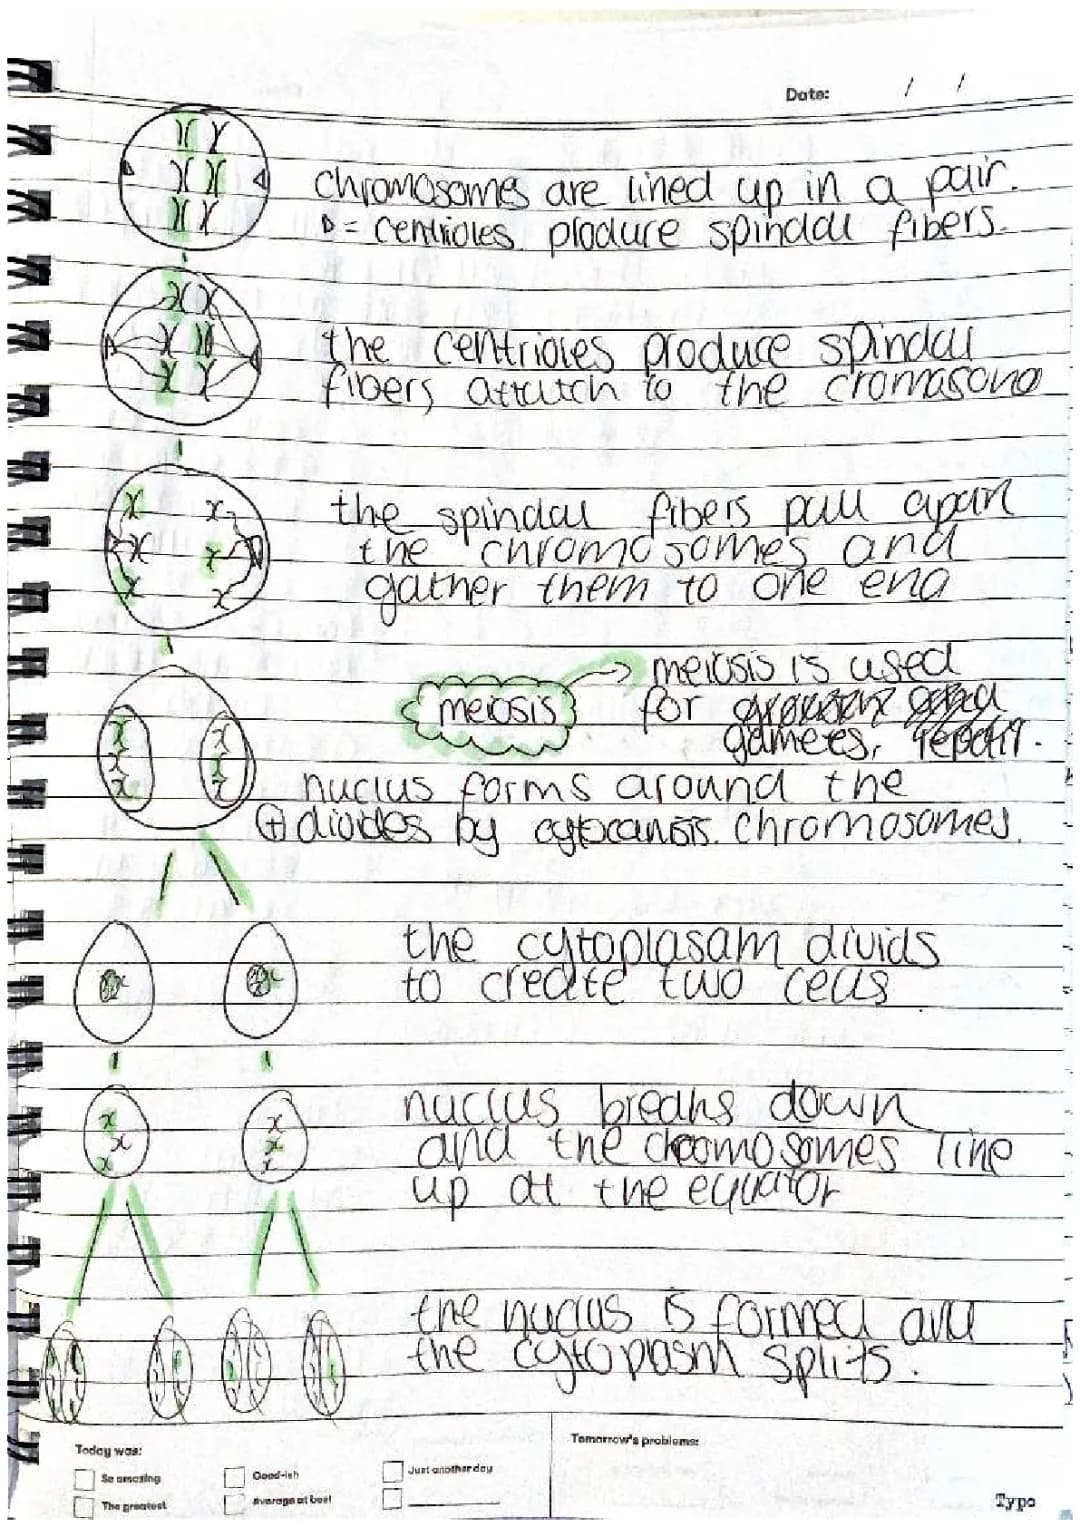 Date: / /
chromosomes are lined up in a pair.
D = centrioles produce spindal fibers.
the centrioles produce spindal
fibers attutch to the cromasono
the spindal fibers pull apart
the chromosomes and
gather them to one end
meiosis is used
meiosis for
gametes, repair.
nuclus forms around the
+ divides by cytocansis. chromosomes.
the cytoplasam divids
to create two cells
nuclus breaks down
and the chromosomes line
up at the equator
the nuclus is formed and
the cytoplasm splits.
Today was:
So amazing
Good-ish
Just another day
The greatest
Average at best
Tomorrow's problems:
Typo